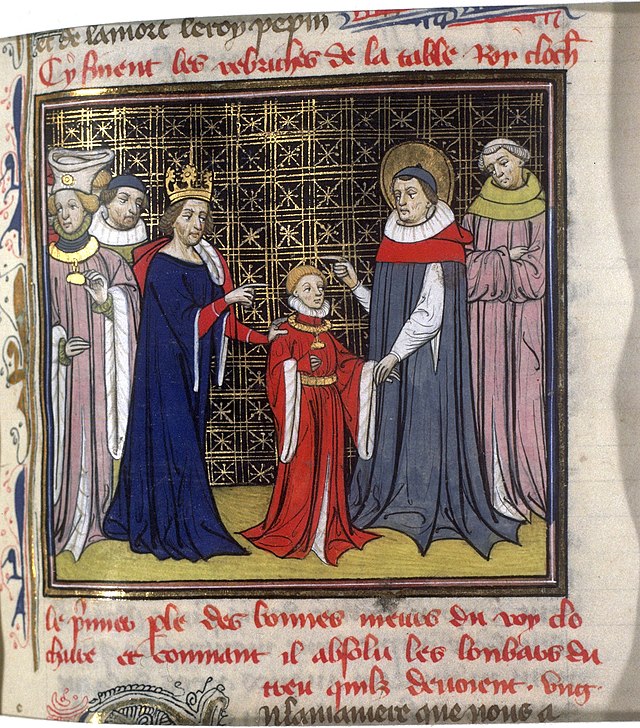 et de la mort le roy pepin
Cy finent les rebriches de la table Roy cloth
le pmier ple des bonnes meurs du roy clo
thaire et comant il absolu les lonbars du
treu quilz devoient. ung.
n la maniere que nous a